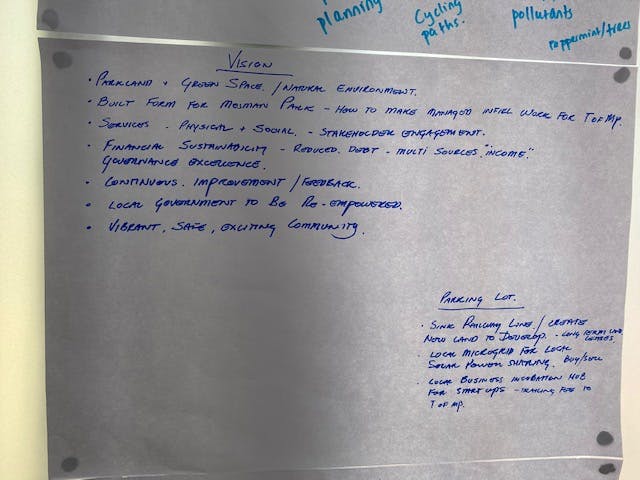 planning
Cycling
paths.
pollutants
peppermint/trees
VISION
• PARKLAND + GREEN SPACE. / NATURAL ENVIRONMENT.
• BUILT FORM FOR MOSMAN PARK - HOW TO MAKE MANAGED INFILL WORK FOR TofMP.
• SERVICES - PHYSICAL + SOCIAL. - STAKEHOLDER ENGAGEMENT.
• FINANCIAL SUSTAINABILITY - REDUCED. DEBT - MULTI SOURCES. "INCOME".
GOVERNANCE EXCELLENCE.
• CONTINUOUS. IMPROVEMENT / FEEDBACK.
• LOCAL GOVERNMENT TO BE RE-EMPOWERED.
• VIBRANT, SAFE, EXCITING COMMUNITY.
PARKING LOT.
• SINK RAILWAY LINE / CREATE
NEW LAND TO DEVELOP. - LONG TERM LAND
LEASES
• LOCAL MICROGRID FOR LOCAL
SOLAR POWER SHARING. BUY/SELL
• LOCAL BUSINESS INCUBATION HUB
FOR START UPS - TRAILING FEE TO
TofMP.